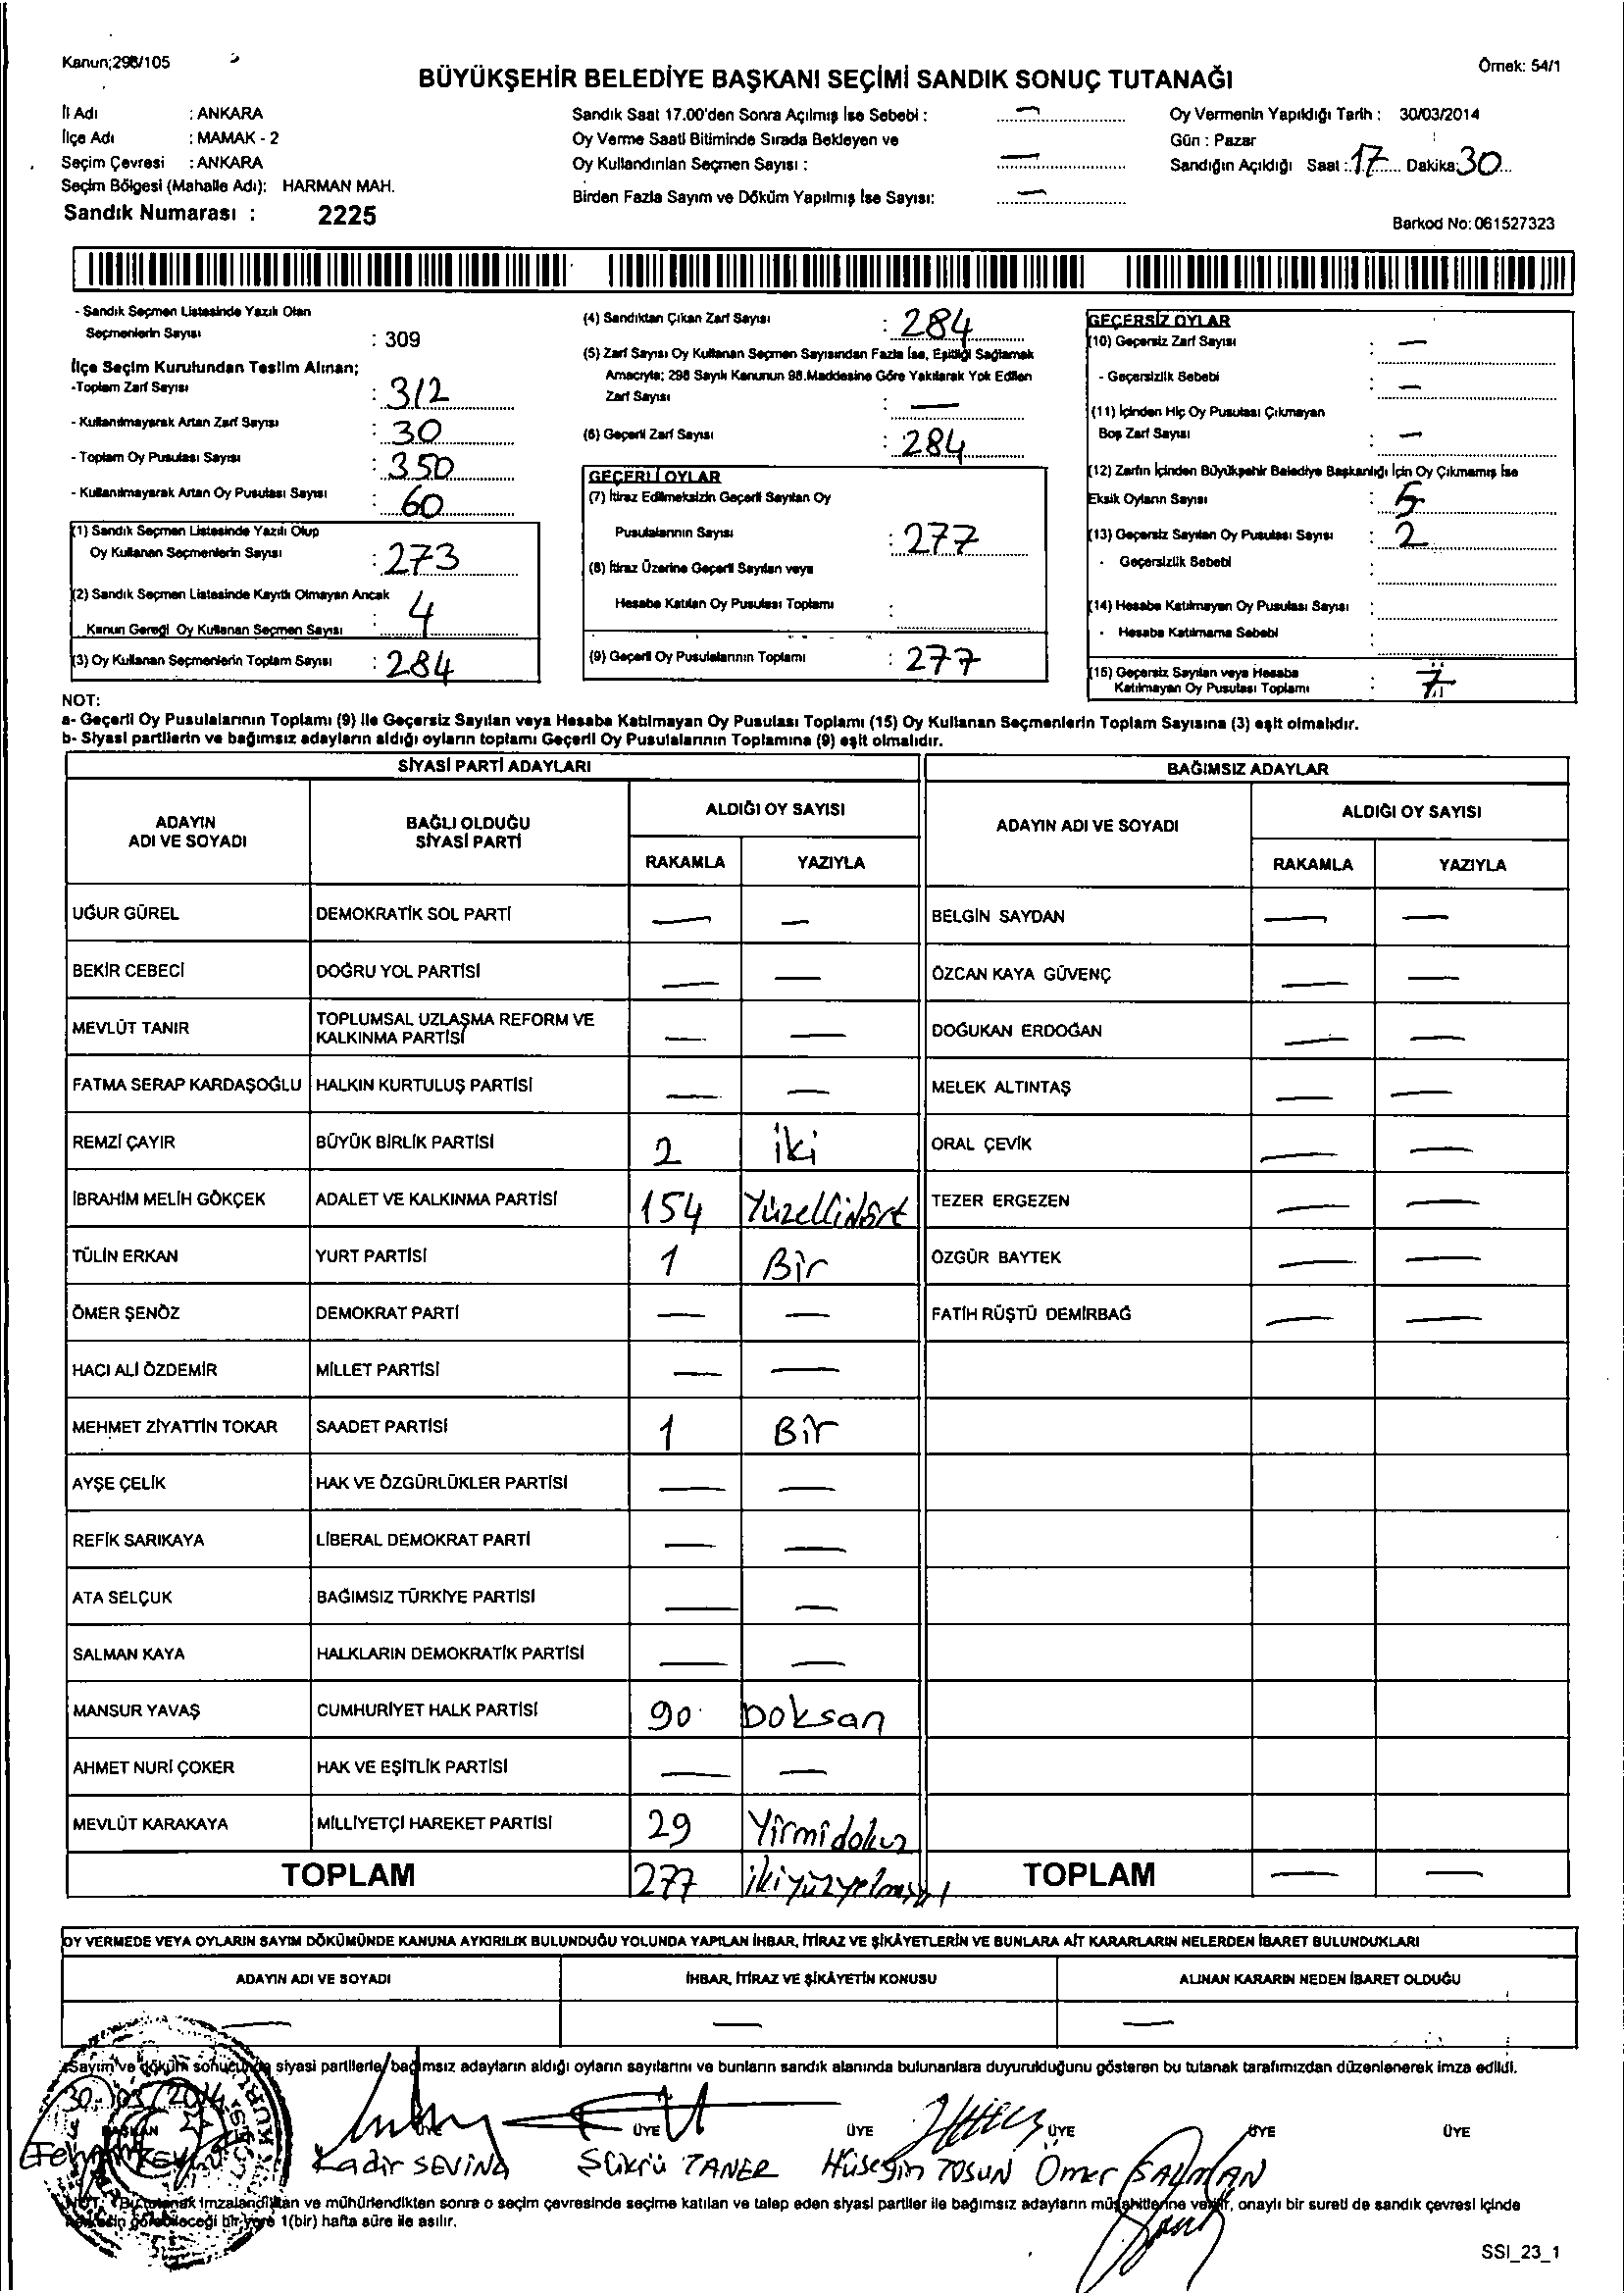 Kanun;298/105
Örnek: 54/1
BÜYÜKŞEHİR BELEDİYE BAŞKANI SEÇİMİ SANDIK SONUÇ TUTANAĞI
İl Adı : ANKARA
İlçe Adı : MAMAK - 2
Seçim Çevresi : ANKARA
Seçim Bölgesi (Mahalle Adı): HARMAN MAH.
Sandık Numarası : 2225
Sandık Saat 17.00'den Sonra Açılmış İse Sebebi : —
Oy Verme Saati Bitiminde Sırada Bekleyen ve
Oy Kullandırılan Seçmen Sayısı : —
Birden Fazla Sayım ve Döküm Yapılmış İse Sayısı: —
Oy Vermenin Yapıldığı Tarih : 30/03/2014
Gün : Pazar
Sandığın Açıldığı Saat : 17 Dakika 30
Barkod No: 061527323
- Sandık Seçmen Listesinde Yazılı Olan
Seçmenlerin Sayısı : 309
İlçe Seçim Kurulundan Teslim Alınan;
-Toplam Zarf Sayısı : 312
- Kullanılmayarak Artan Zarf Sayısı : 30
- Toplam Oy Pusulası Sayısı : 350
- Kullanılmayarak Artan Oy Pusulası Sayısı : 60
(1) Sandık Seçmen Listesinde Yazılı Olup
Oy Kullanan Seçmenlerin Sayısı : 273
(2) Sandık Seçmen Listesinde Kayıtlı Olmayan Ancak
Kanun Gereği Oy Kullanan Seçmen Sayısı : 4
(3) Oy Kullanan Seçmenlerin Toplam Sayısı : 284
(4) Sandıktan Çıkan Zarf Sayısı : 284
(5) Zarf Sayısı Oy Kullanan Seçmen Sayısından Fazla İse, Eşitliği Sağlamak
Amacıyla; 298 Sayılı Kanunun 98.Maddesine Göre Yakılarak Yok Edilen
Zarf Sayısı : —
(6) Geçerli Zarf Sayısı : 284
GEÇERLİ OYLAR
(7) İtiraz Edilmeksizin Geçerli Sayılan Oy
Pusulalarının Sayısı : 277
(8) İtiraz Üzerine Geçerli Sayılan veya
Hesaba Katılan Oy Pusulası Toplamı :
(9) Geçerli Oy Pusulalarının Toplamı : 277
GEÇERSİZ OYLAR
(10) Geçersiz Zarf Sayısı : —
- Geçersizlik Sebebi : —
(11) İçinden Hiç Oy Pusulası Çıkmayan
Boş Zarf Sayısı : —
(12) Zarfın İçinden Büyükşehir Belediye Başkanlığı İçin Oy Çıkmamış İse
Eksik Oyların Sayısı : 5
(13) Geçersiz Sayılan Oy Pusulası Sayısı : 2
- Geçersizlik Sebebi :
(14) Hesaba Katılmayan Oy Pusulası Sayısı :
- Hesaba Katılmama Sebebi :
(15) Geçersiz Sayılan veya Hesaba
Katılmayan Oy Pusulası Toplamı : 7
NOT:
a- Geçerli Oy Pusulalarının Toplamı (9) ile Geçersiz Sayılan veya Hesaba Katılmayan Oy Pusulası Toplamı (15) Oy Kullanan Seçmenlerin Toplam Sayısına (3) eşit olmalıdır.
b- Siyasi partilerin ve bağımsız adayların aldığı oyların toplamı Geçerli Oy Pusulalarının Toplamına (9) eşit olmalıdır.
SİYASİ PARTİ ADAYLARI
ADAYIN ADI VE SOYADI BAĞLI OLDUĞU SİYASİ PARTİ ALDIĞI OY SAYISI
RAKAMLA YAZIYLA
UĞUR GÜREL DEMOKRATİK SOL PARTİ — —
BEKİR CEBECİ DOĞRU YOL PARTİSİ — —
MEVLÜT TANIR TOPLUMSAL UZLAŞMA REFORM VE KALKINMA PARTİSİ — —
FATMA SERAP KARDAŞOĞLU HALKIN KURTULUŞ PARTİSİ — —
REMZİ ÇAYIR BÜYÜK BİRLİK PARTİSİ 2 iki
İBRAHİM MELİH GÖKÇEK ADALET VE KALKINMA PARTİSİ 154 Yüzellidört
TÜLİN ERKAN YURT PARTİSİ 1 Bir
ÖMER ŞENÖZ DEMOKRAT PARTİ — —
HACI ALİ ÖZDEMİR MİLLET PARTİSİ — —
MEHMET ZİYATTİN TOKAR SAADET PARTİSİ 1 Bir
AYŞE ÇELİK HAK VE ÖZGÜRLÜKLER PARTİSİ — —
REFİK SARIKAYA LİBERAL DEMOKRAT PARTİ — —
ATA SELÇUK BAĞIMSIZ TÜRKİYE PARTİSİ — —
SALMAN KAYA HALKLARIN DEMOKRATİK PARTİSİ — —
MANSUR YAVAŞ CUMHURİYET HALK PARTİSİ 90 Doksan
AHMET NURİ ÇOKER HAK VE EŞİTLİK PARTİSİ — —
MEVLÜT KARAKAYA MİLLİYETÇİ HAREKET PARTİSİ 29 Yirmidokuz
TOPLAM 277
BAĞIMSIZ ADAYLAR
ADAYIN ADI VE SOYADI ALDIĞI OY SAYISI
RAKAMLA YAZIYLA
BELGİN SAYDAN — —
ÖZCAN KAYA GÜVENÇ — —
DOĞUKAN ERDOĞAN — —
MELEK ALTINTAŞ — —
ORAL ÇEVİK — —
TEZER ERGEZEN — —
ÖZGÜR BAYTEK — —
FATİH RÜŞTÜ DEMİRBAĞ — —
TOPLAM — —
OY VERMEDE VEYA OYLARIN SAYIM DÖKÜMÜNDE KANUNA AYKIRILIK BULUNDUĞU YOLUNDA YAPILAN İHBAR, İTİRAZ VE ŞİKÂYETLERİN VE BUNLARA AİT KARARLARIN NELERDEN İBARET BULUNDUKLARI
ADAYIN ADI VE SOYADI İHBAR, İTİRAZ VE ŞİKÂYETİN KONUSU ALINAN KARARIN NEDEN İBARET OLDUĞU
— — —
Sayım ve döküm sonucunda siyasi partilerle/ bağımsız adayların aldığı oyların sayılarını ve bunların sandık alanında bulunanlara duyurulduğunu gösteren bu tutanak tarafımızdan düzenlenerek imza edildi.
30/03/2014
BAŞKAN ÜYE ÜYE ÜYE ÜYE ÜYE
Kadir SEVİNÇ Şükrü TANER Hüseyin TOSUN Ömer SALMAN
NOT: Bu tutanak imzalandıktan ve mühürlendikten sonra o seçim çevresinde seçime katılan ve talep eden siyasi partiler ile bağımsız adayların müşahitlerine verilir, onaylı bir sureti de sandık çevresi içinde
herkesin görebileceği bir yere 1(bir) hafta süre ile asılır.
SSI_23_1